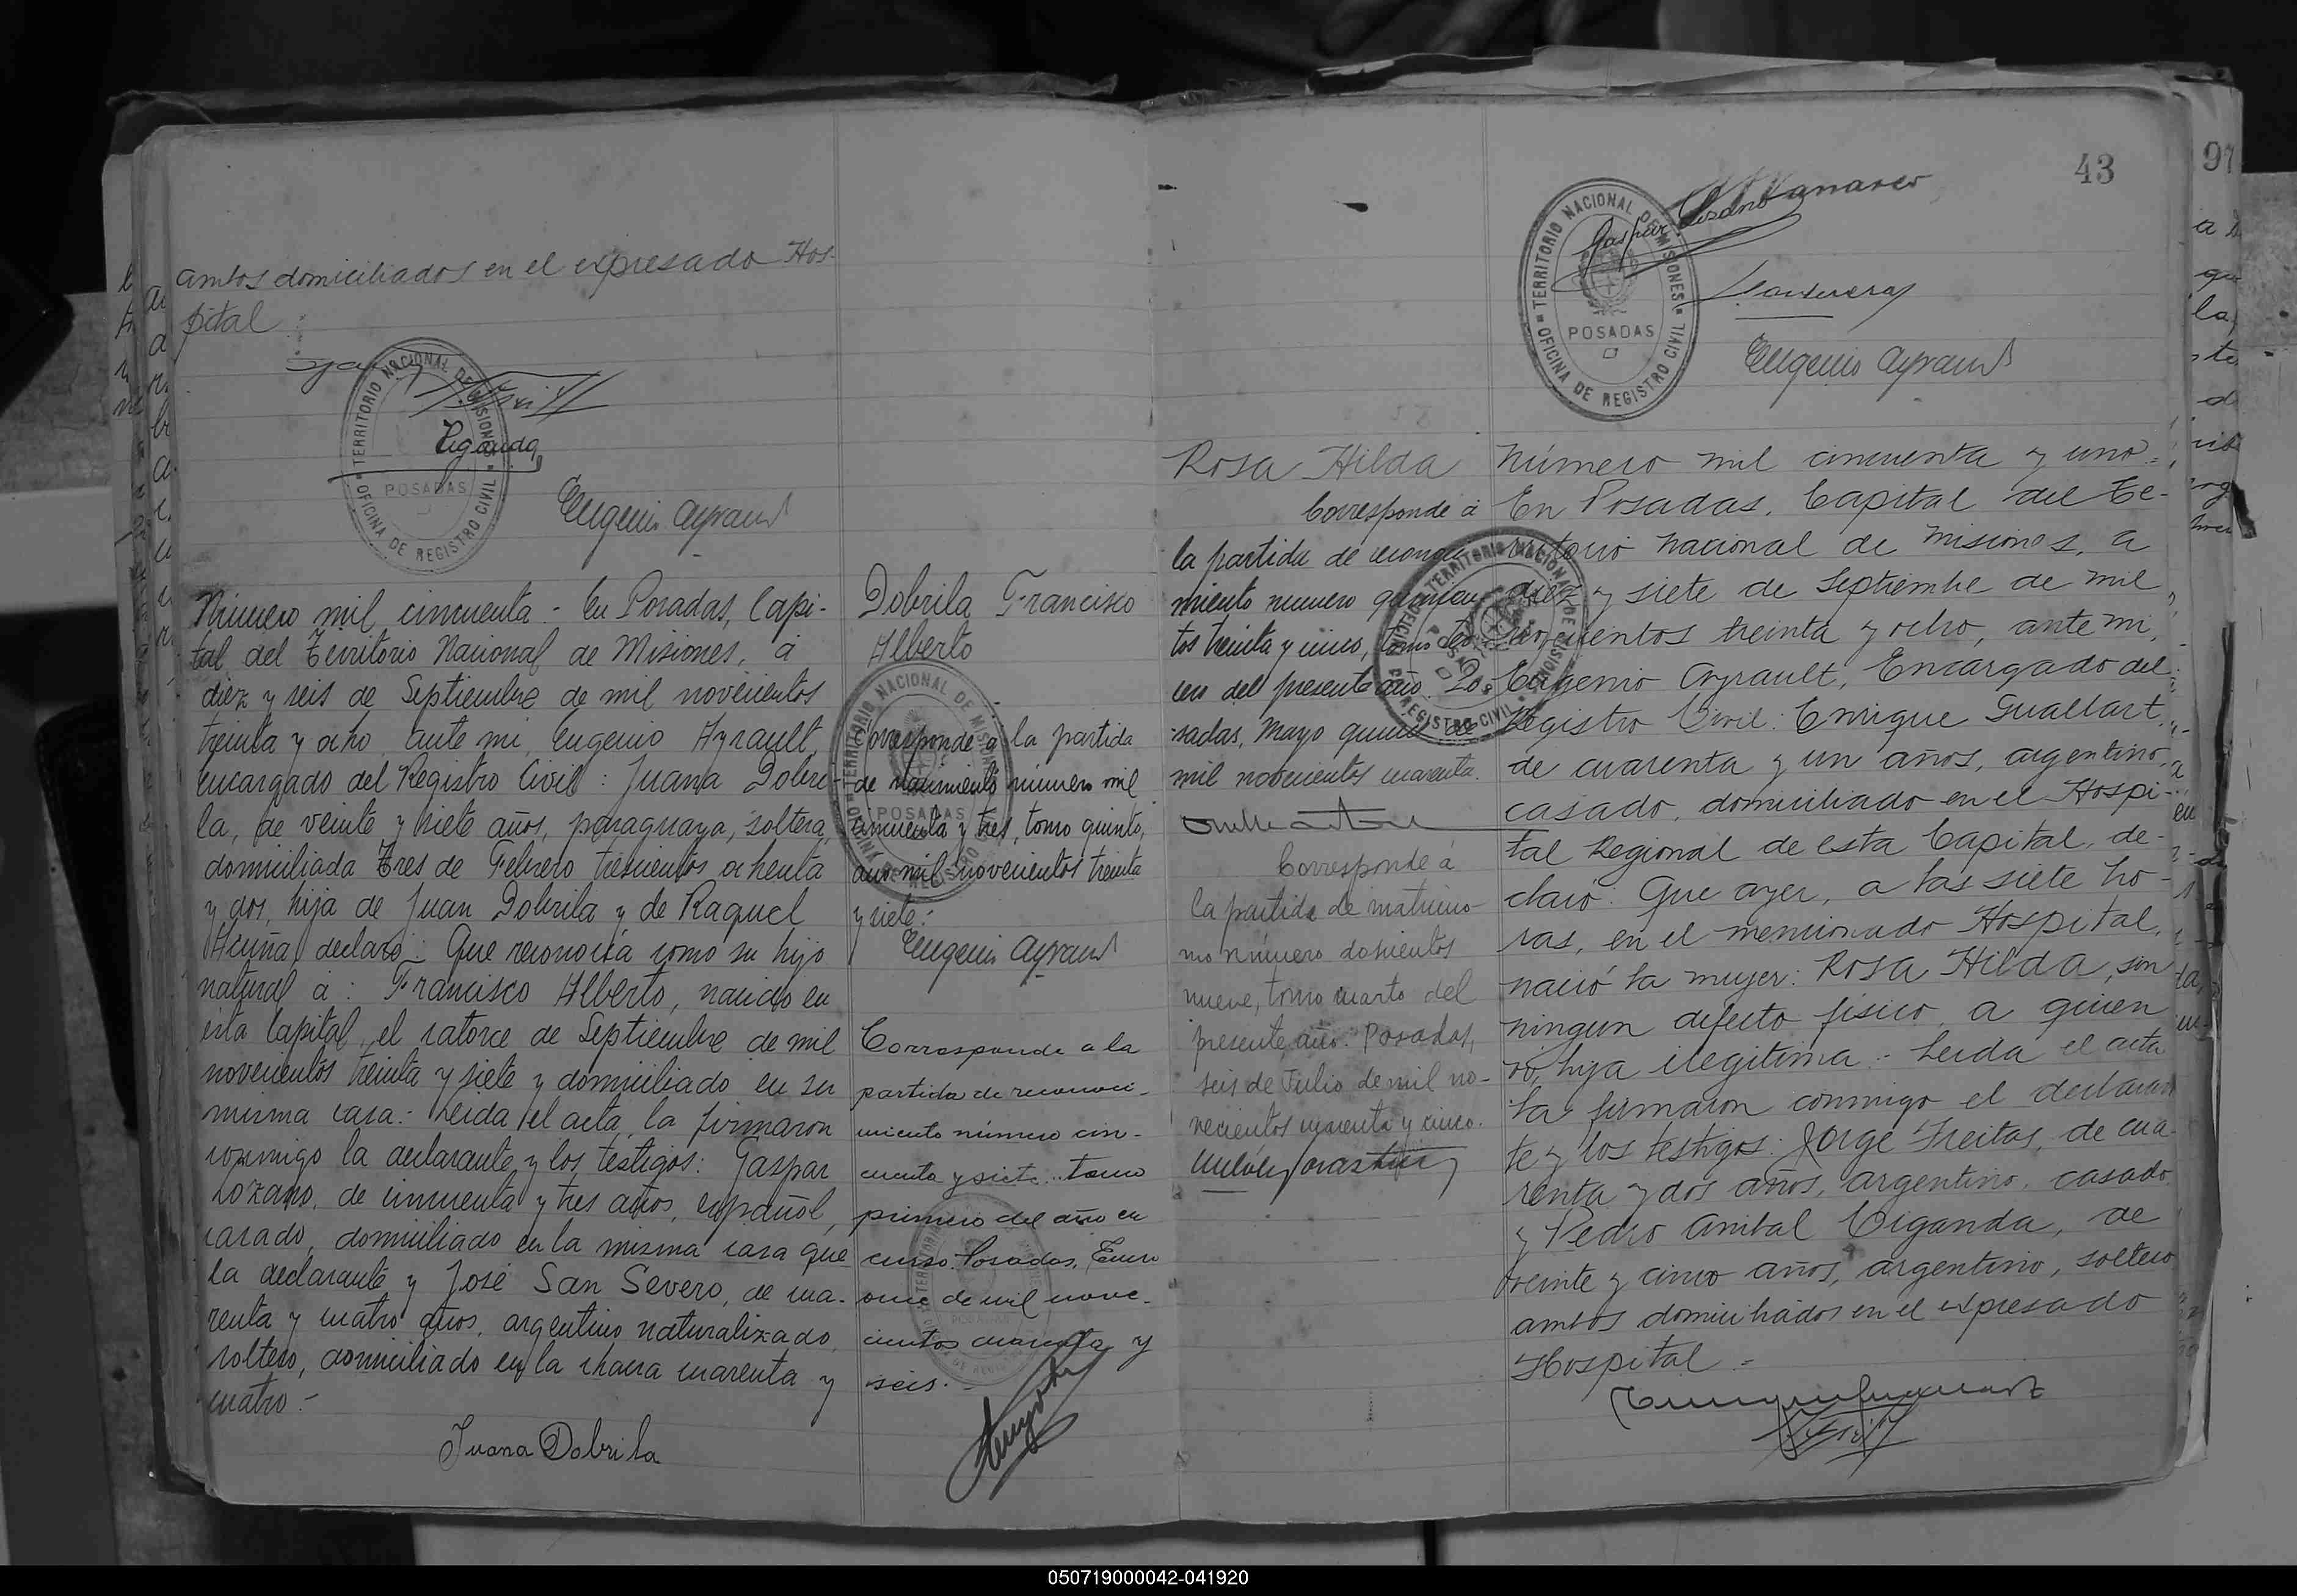 ambos domiciliados en el expresado Hos-
pital
TERRITORIO NACIONAL DE MISIONES
POSADAS
OFICINA DE REGISTRO CIVIL
Viganda
Eugenio Ayrault
Número mil cincuenta - En Posadas, Capi-
tal del Territorio Nacional de Misiones, a
diez y seis de Septiembre de mil novecientos
treinta y ocho, ante mi, Eugenio Ayrault,
encargado del Registro Civil: Juana Dobri-
la, de veinte y siete años, paraguaya, soltera,
domiciliada Tres de Febrero trescientos ochenta
y dos, hija de Juan Dobrila y de Raquel
Acuña, declaró: Que reconocía como su hijo
natural a: Francisco Alberto, nacido en
esta Capital, el catorce de Septiembre de mil
novecientos treinta y siete y domiciliado en su
misma casa.- Leida el acta, la firmaron
conmigo la declarante y los testigos: Gaspar
Lozano, de cincuenta y tres años, español,
casado, domiciliado en la misma casa que
la declarante y José San Severo, de cua-
renta y cuatro años, argentino naturalizado,
soltero, domiciliado en la chacra cuarenta y
cuatro.-
Juana Dobrila
Dobrila Francisco
Alberto
TERRITORIO NACIONAL DE MISIONES
POSADAS
Corresponde a la partida
de nacimiento número mil
cincuenta y tres, tomo quinto,
año mil novecientos treinta
y siete.-
Eugenio Ayrault
Corresponde a la
partida de reconoci-
miento número cin-
cuenta y siete tomo
primero del año en
curso. Posadas, Enero
once de mil nove-
cientos cuarenta y
seis.-
43
97
TERRITORIO NACIONAL DE MISIONES
POSADAS
OFICINA DE REGISTRO CIVIL
Gaspar Lozano
Eugenio Ayrault
Rosa Hilda
Corresponde á
la partida de reconoci-
miento numero quinien-
tos treinta y cinco, tomo ter-
cero del presente año. Po-
sadas, Mayo quince de
mil novecientos cuarenta.
Corresponde á
la partida de matrimo-
nio número doscientos
nueve, tomo cuarto del
presente año. Posadas,
seis de Julio de mil no-
vecientos cuarenta y cinco.
Número mil cincuenta y uno-
En Posadas, Capital del Te-
rritorio Nacional de Misiones, a
diez y siete de Septiembre de mil
novecientos treinta y ocho, ante mi,
Eugenio Ayrault, Encargado del
Registro Civil: Enrique Guallart,
de cuarenta y un años, argentino,
casado, domiciliado en el Hospi-
tal Regional de esta Capital, de-
claró: Que ayer, a las siete ho-
ras, en el mencionado Hospital,
nació la mujer: Rosa Hilda, sin
ningun defecto físico, a quien
hija ilegitima.- Leida el acta
la firmaron conmigo el declaran
te y los testigos: Jorge Freitas, de cua-
renta y dos años, argentino, casado
y Pedro Anibal Viganda, de
veinte y cinco años, argentino, soltero
ambos domiciliados en el expresado
Hospital.-
050719000042-041920